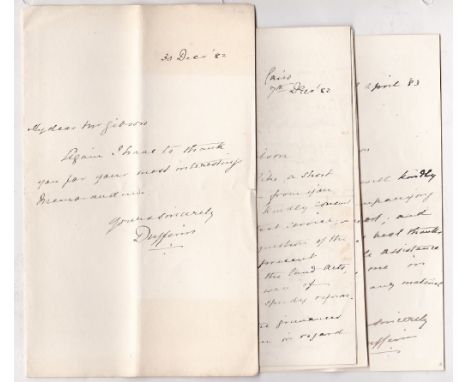 31 Decr '82
My dear Mr Gibson
Again I have to thank
you for your most interesting
memorandum.
Yours sincerely
Dufferin
Cairo
7th Decr '82
like a short
from you
kindly
question of the
present
the land Acts,
was of
speedy repeal.
the grievances
in regard
April 83
will kindly
accompanying
and
best thanks
assistance
me in
any material
sincerely
Dufferin